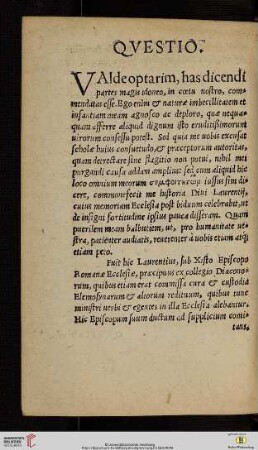 QVESTIO.
VAlde optarim, has dicendi
partes magis idoneo, in cœtu nostro, com-
mendatas esse. Ego enim & naturæ imbecillitatem et
infantiam meam agnosco ac deploro, quæ nequa-
quam afferre aliquid dignum isto eruditissimorum
uirorum consessu potest. Sed quia me uobis excusat
scholæ huius consuetudo, & præceptorum autoritas,
quam detrectare sine flagitio non potui, nihil mei
purgandi causa addam amplius: sed cum aliquid hic
loco omnium meorum iussus sim di-
cere, commonefecit me historia Diui Laurentij,
cuius memoriam Ecclesia post biduum celebrabit, ut
de insigni fortitudine ipsius pauca disseram. Quam
puerilem meam balbutiem, ut, pro humanitate ue-
stra, patienter audiatis, reuerenter à uobis etiam atque
etiam peto.
Fuit hic Laurentius, sub Xisto Episcopo
Romanæ Ecclesiæ, præcipuus ex collegio Diacono-
rum, quibus etiam erat commissa cura & custodia
Elemosynarum & aliorum redituum, quibus tunc
ministri uerbi & egentes in illa Ecclesia alebantur.
Hic Episcopum suum ductum ad supplicium comi-
tatus,